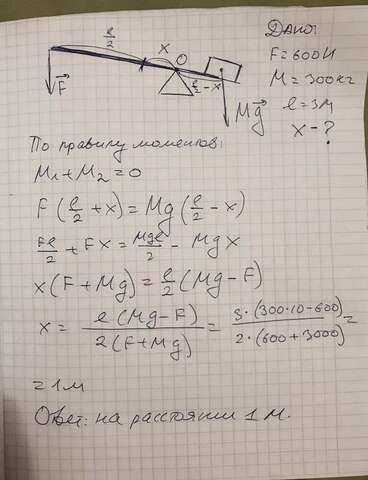 Дано:
F = 600 Н
M = 300 кг
l = 3 м
x - ?
l/2
x
O
l/2 - x
F⃗
Mg⃗
По правилу моментов:
M₁ + M₂ = 0
F (l/2 + x) = Mg (l/2 - x)
Fl/2 + Fx = Mgl/2 - Mgx
x (F + Mg) = l/2 (Mg - F)
x = l (Mg - F) / 2 (F + Mg) = 3 · (300 · 10 - 600) / 2 · (600 + 3000) =
= 1 м
Ответ: на расстоянии 1 м.